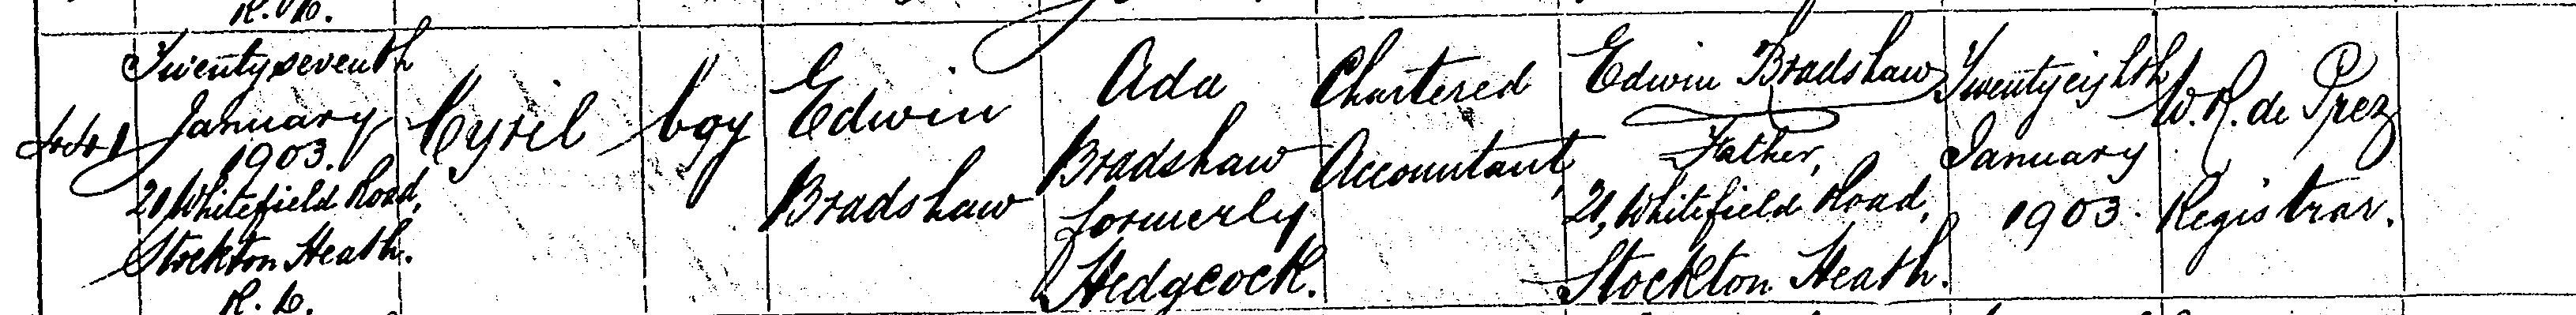 R. D.
Twenty seventh
January
1903.
21, Whitefield Road,
Stockton Heath.
R. D.
441
Cyril
boy
Edwin
Bradshaw
Ada
Bradshaw
formerly
Hedgcock.
Chartered
Accountant,
Edwin Bradshaw
Father,
21, Whitefield Road,
Stockton Heath.
Twenty eighth
January
1903.
W. R. de Prez
Registrar.